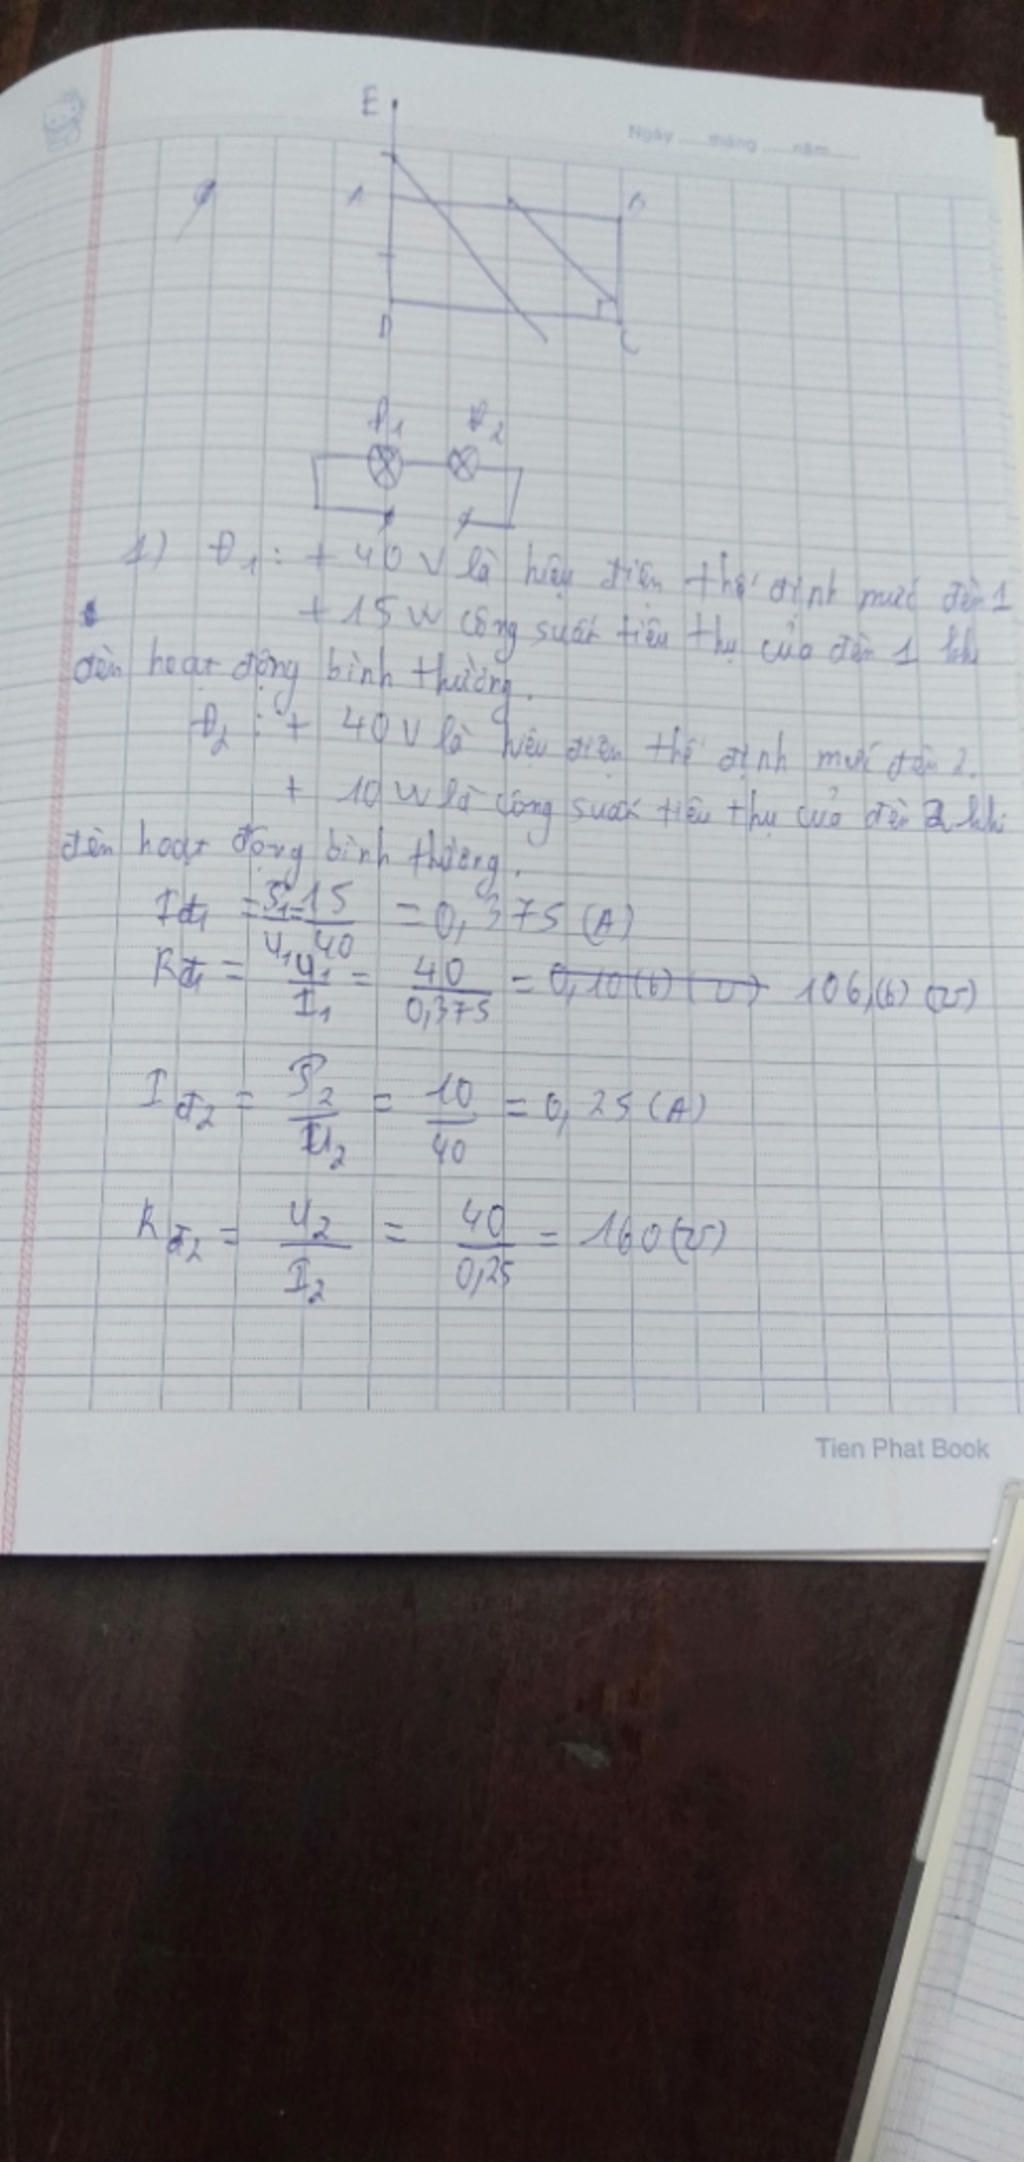 E
Ngày ...... tháng ...... năm ......
A
D
C
Đ1 Đ2
1) Đ1 : + 40 V là hiệu điện thế định mức đèn 1
+ 15 W công suất tiêu thụ của đèn 1 khi
đèn hoạt động bình thường.
Đ2 : + 40 V là hiệu điện thế định mức đèn 2.
+ 10 W là công suất tiêu thụ của đèn 2 khi
đèn hoạt động bình thường.
Iđ1 = P1/U1 = 15/40 = 0,375 (A)
Rđ1 = U1/I1 = 40/0,375 = 0,10(6) (Ω) 106,(6) (Ω)
Iđ2 = P2/U2 = 10/40 = 0,25 (A)
Rđ2 = U2/I2 = 40/0,25 = 160 (Ω)
Tien Phat Book